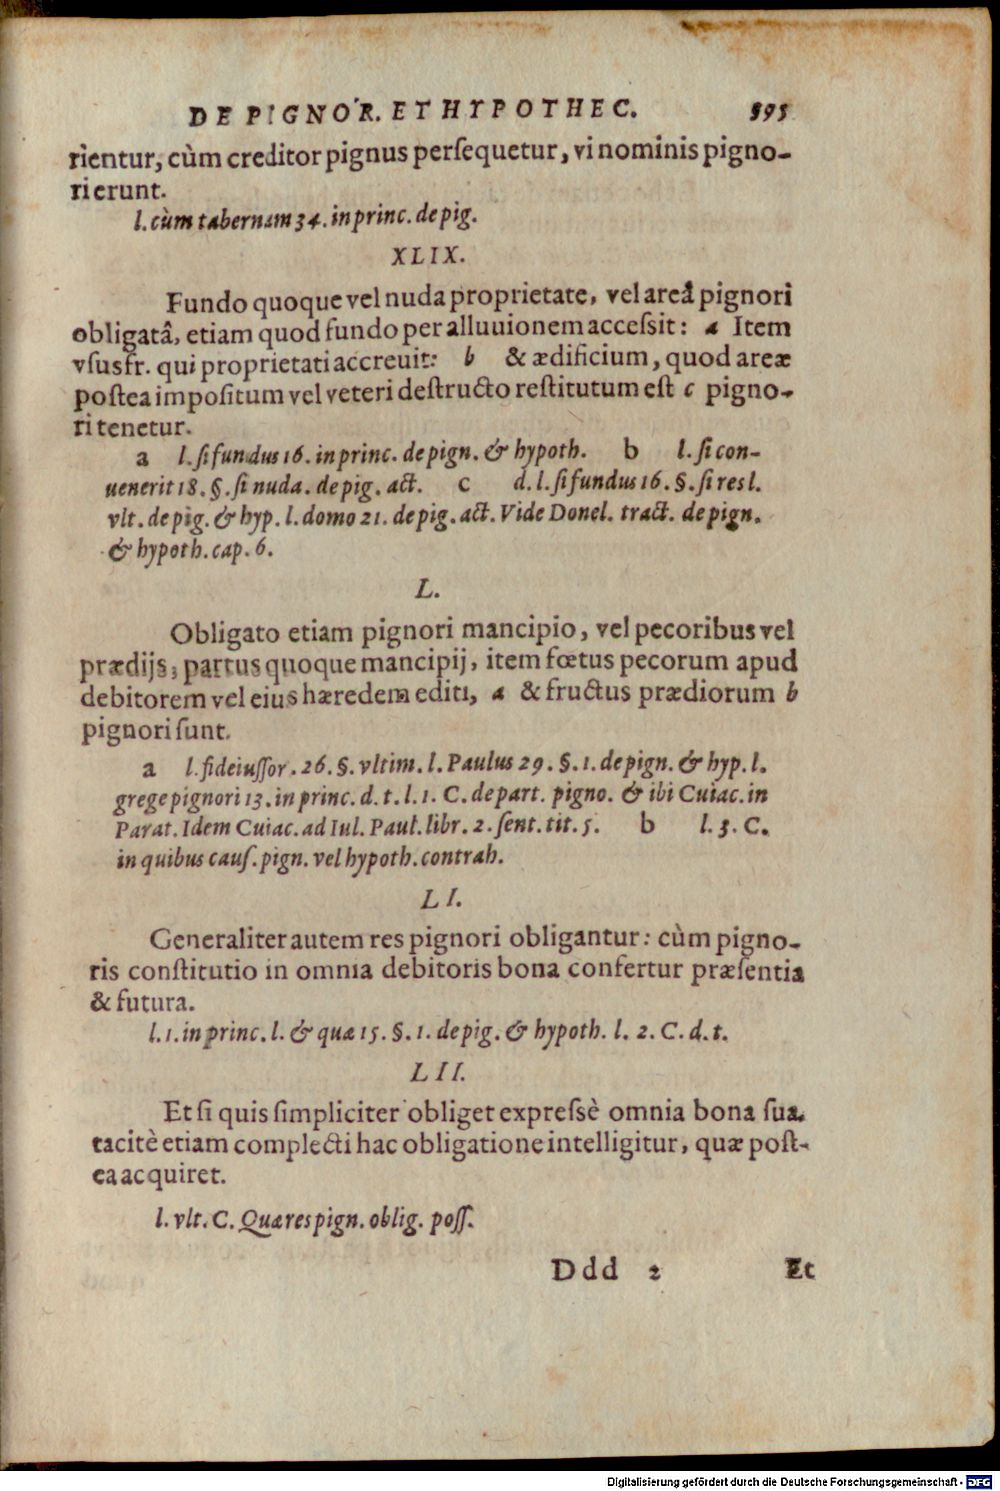 DE PIGNOR. ET HYPOTHEC. 595
rientur, cùm creditor pignus persequetur, vi nominis pigno-
ri erunt.
l. cùm tabernam 34. in princ. de pig.
XLIX.
Fundo quoque vel nuda proprietate, vel areâ pignori
obligatâ, etiam quod fundo per alluuionem accessit: a Item
vsusfr. qui proprietati accreuit: b & ædificium, quod areæ
postea impositum vel veteri destructo restitutum est c pigno-
ri tenetur.
a l. si fundus 16. in princ. de pign. & hypoth. b l. si con-
uenerit 18. §. si nuda. de pig. act. c d. l. si fundus 16. §. si res l.
vlt. de pig. & hyp. l. domo 21. de pig. act. Vide Donel. tract. de pign.
& hypoth. cap. 6.
L.
Obligato etiam pignori mancipio, vel pecoribus vel
prædijs, partus quoque mancipij, item fœtus pecorum apud
debitorem vel eius hæredem editi, a & fructus prædiorum b
pignori sunt.
a l. fideiussor. 26. §. vltim. l. Paulus 29. §. 1. de pign. & hyp. l.
grege pignori 13. in princ. d. t. l. 1. C. de part. pigno. & ibi Cuiac. in
Parat. Idem Cuiac. ad Iul. Paul. libr. 2. sent. tit. 5. b l. 3. C.
in quibus caus. pign. vel hypoth. contrah.
LI.
Generaliter autem res pignori obligantur: cùm pigno-
ris constitutio in omnia debitoris bona confertur præsentia
& futura.
l. 1. in princ. l. & quæ 15. §. 1. de pig. & hypoth. l. 2. C. d. t.
LII.
Et si quis simpliciter obliget expressè omnia bona sua,
tacitè etiam complecti hac obligatione intelligitur, quæ post-
ea acquiret.
l. vlt. C. Quæ res pign. oblig. poss.
Ddd 2 Et
Digitalisierung gefördert durch die Deutsche Forschungsgemeinschaft - DFG